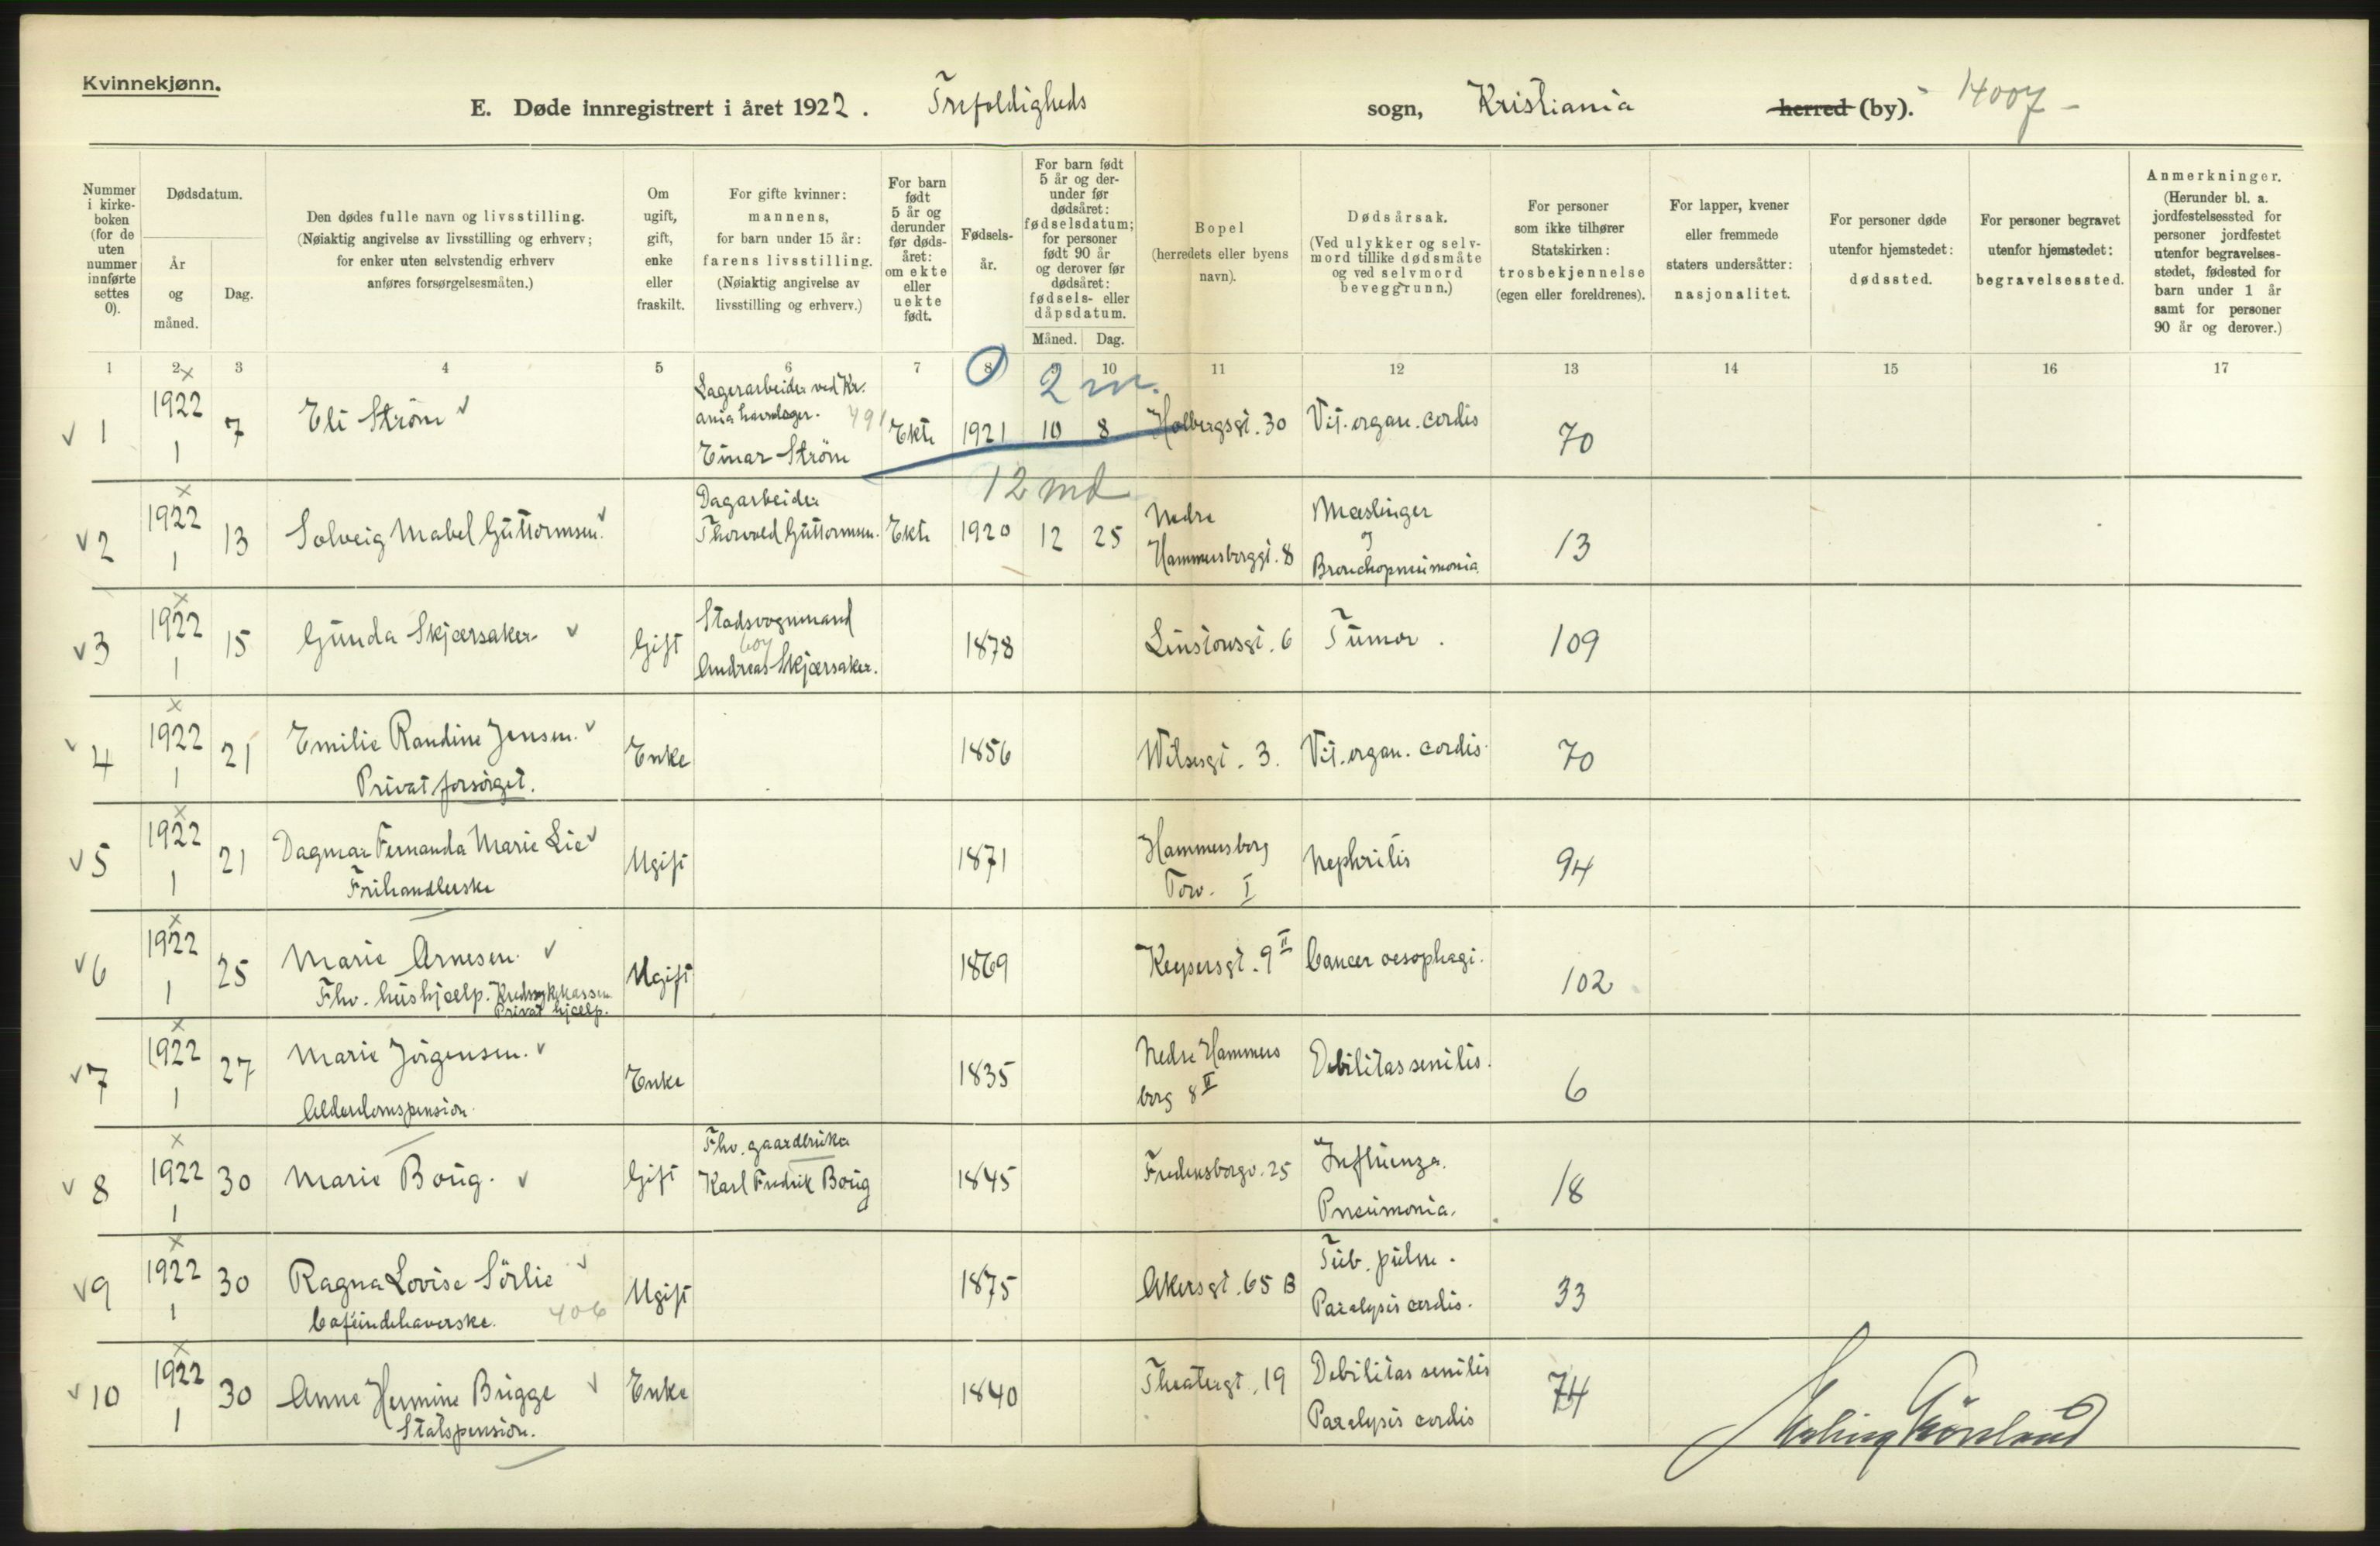 Kvinnekjønn.
E. Døde innregistrert i året 1922. Trefoldigheds sogn, Kristiania herred (by). 14007 -
Nummer i kirke-boken (for de uten nummer innførte settes 0).
Dødsdatum.
År og måned.
Dag.
Den dødes fulle navn og livsstilling.
(Nøiaktig angivelse av livsstilling og erhverv;
for enker uten selvstendig erhverv
anføres forsørgelsesmåten.)
Om ugift, gift, enke eller fraskilt.
For gifte kvinner:
mannens,
for barn under 15 år:
farens livsstilling.
(Nøiaktig angivelse av
livsstilling og erhverv.)
For barn født 5 år og derunder før døds-året: om ekte eller uekte født.
Fødsels-år.
For barn født 5 år og der-under før dødsåret: fødselsdatum; for personer født 90 år og derover før dødsåret: fødsels- eller dåpsdatum.
Måned. Dag.
Bopel
(herredets eller byens navn).
Dødsårsak.
(Ved ulykker og selv-mord tillike dødsmåte og ved selvmord beveggrunn.)
For personer som ikke tilhører Statskirken: trosbekjennelse (egen eller foreldrenes).
For lapper, kvener eller fremmede staters undersåtter: nasjonalitet.
For personer døde utenfor hjemstedet: dødssted.
For personer begravet utenfor hjemstedet: begravelsessted.
Anmerkninger.
(Herunder bl. a. jordfestelsessted for personer jordfestet utenfor begravelses-stedet, fødested for barn under 1 år samt for personer 90 år og derover.)
1 2 3 4 5 6 7 8 9 10 11 12 13 14 15 16 17
2 m.
1 1922 1 7 Eli Strøm Lagerarbeider ved Kr.
ania havnelager. 491
Einar Strøm Ekte 1921 10 8 Holbergsgt. 30 Vit. organ. cordis 70
12 md
2 1922 1 13 Solveig Mabel Guttormsen. Dagarbeider
Thorvald Guttormsen. Ekte 1920 12 25 Nedre
Hammersborggt. 8 Mæslinger
og
Bronchopneumonia 13
3 1922 1 15 Gunda Skjærsaker Gift Stadsvognmand
607
Andreas Skjærsaker. 1878 Linstowsgt. 6 Tumor. 109
4 1922 1 21 Emilie Randine Jensen.
Privat forsørget. Enke 1856 Wilsesgt. 3. Vit. organ. cordis. 70
5 1922 1 21 Dagmar Fernanda Marie Lie
Frihandlerske Ugift 1871 Hammersborg
Torv. I Nephritis 94
6 1922 1 25 Marie Arnesen.
Fhv. hushjælp. Kredssykekassen
Privat hjælp. Ugift 1869 Keysersgt. 9 II Cancer oesophagi. 102
7 1922 1 27 Marie Jørgensen.
Alderdomspension. Enke 1835 Nedre Hammers
borg 8 II Debilitas senilis. 6
8 1922 1 30 Marie Boug. Gift Fhv. gaardbruker
Karl Fredrik Boug 1845 Fredensborgv. 25 Influenza.
Pneumonia. 18
9 1922 1 30 Ragna Lovise Sørlie
Caféindehaverske. 406 Ugift 1875 Akersgt. 65 B Tub. pulm.
Paralysis cordis. 33
10 1922 1 30 Anne Hermine Brügge
Statspension. Enke 1840 Theatergt. 19 Debilitas senilis
Paralysis cordis 74